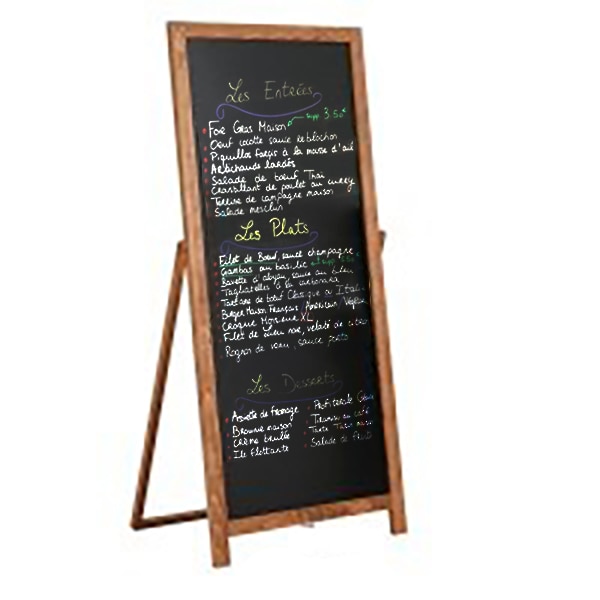 Les Entrées
Foie Gras Maison supp 3.50€
Oeuf cocotte sauce reblochon
Piquillos farçis à la mousse d'ail
Artichauds lardés
Salade de bœuf Thaï
Croustillant de poulet au curry
Terrine de campagne maison
Salade mesclun
Les Plats
Filet de Bœuf, sauce champagne
Gambas au basilic supp
Bavette d'aloyau, sauce au bleu
Tagliatelles à la carbonara
Tartare de bœuf Classique ou Italien
Burger Maison Français / Américain / Végétar
Croque Monsieur XL
Filet de lieu noir, velouté de
Rognon de veau, sauce porto
Les Desserts
Assiette de fromage
Brownie maison
Crème brulée
Ile flottante
Profiterole
Tiramisu au café
Tarte Tatin maison
Salade de fruits